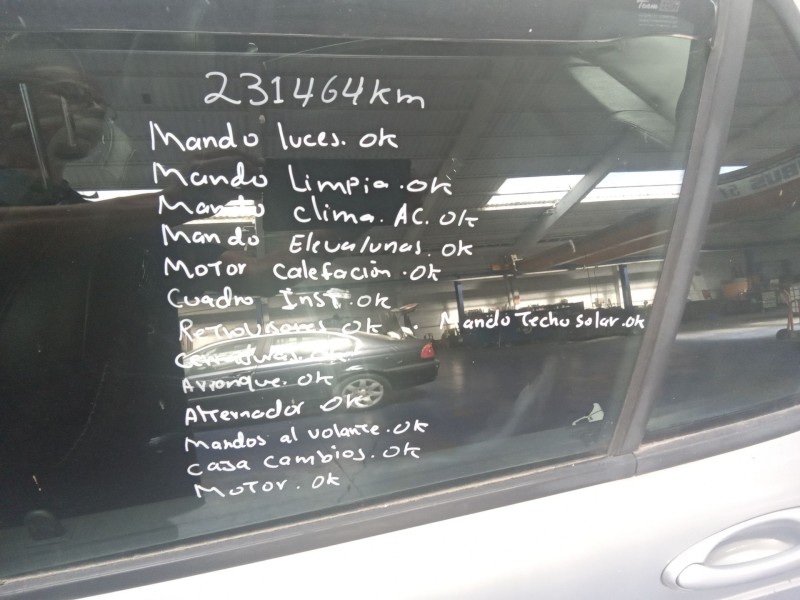 231464km
Mando luces. ok
Mando Limpia. ok
Mando clima. AC. ok
Mando Elevalunas. ok
Motor Calefación. ok
Cuadro Inst. ok
Retrovisores ok
Mando Techo solar. ok
Cerraduras. ok
Arranque. ok
Alternador ok
Mandos al volante. ok
Caja cambios. ok
Motor. ok